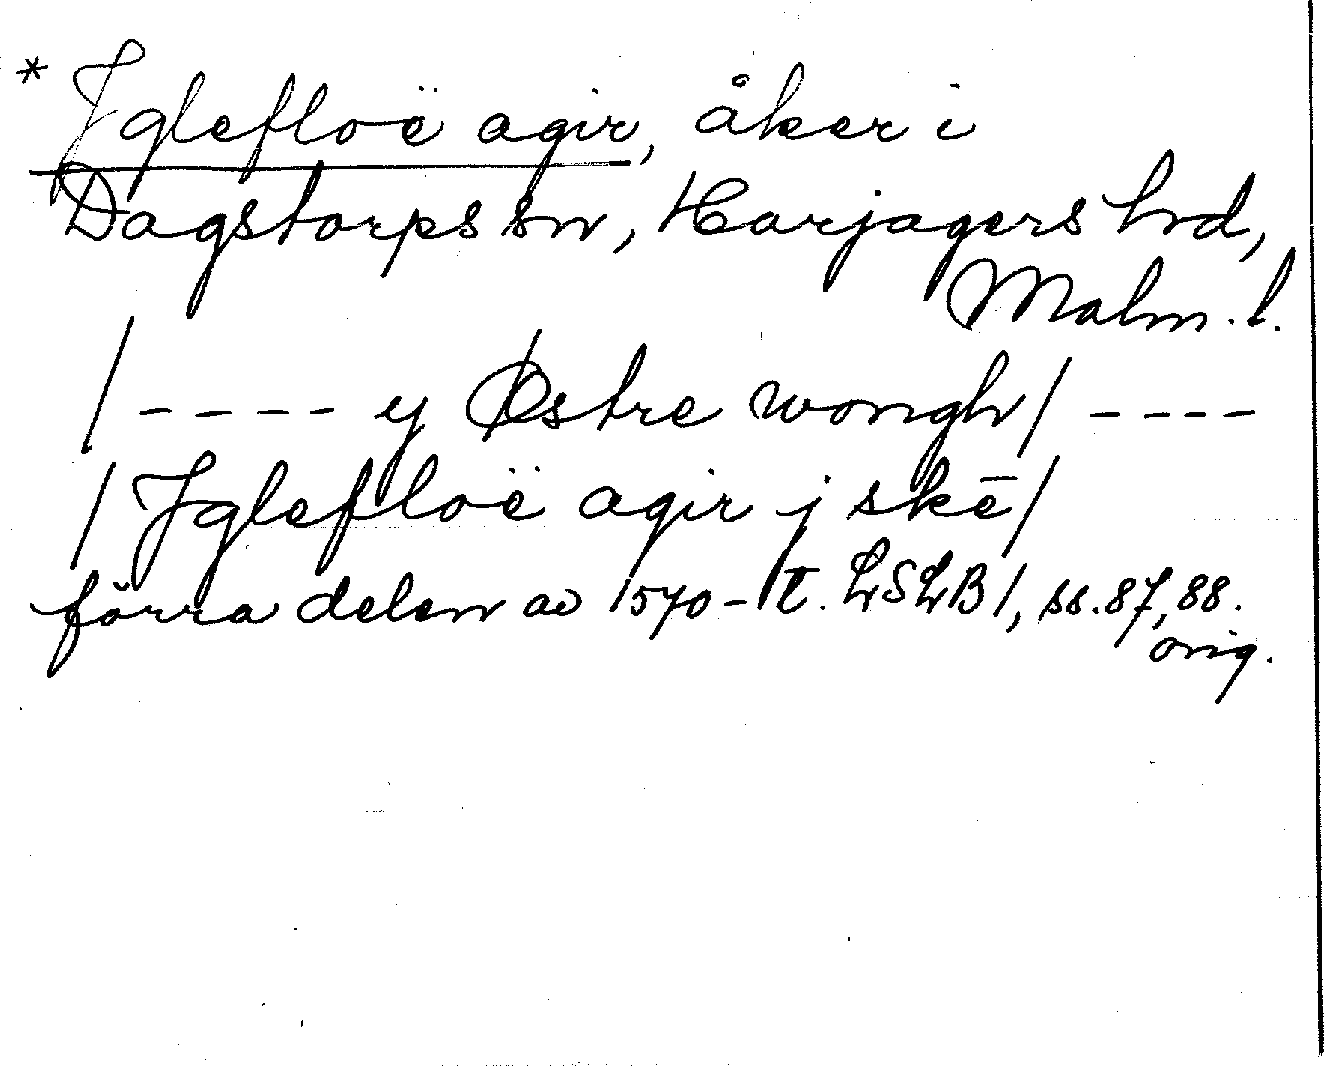 * Jglefloë agir, åker i
Dagstorps sn, Harjagers hd,
Malm. l.
/---- ij Østre wongh/ ----
/Jglefloë agir j skē/
förra delen av 1570-t. LSLB 1, ss. 87, 88.
orig.